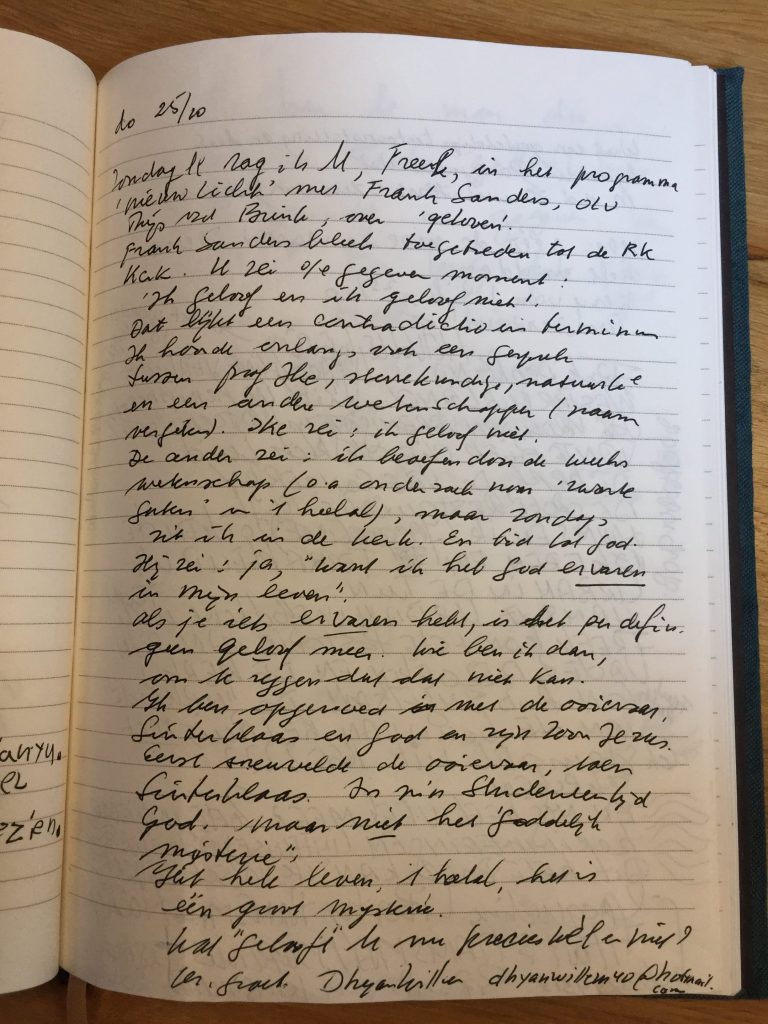 do 25/10
Zondag ll zag ik U, Freek, in het programma
'nieuw licht' met Frank Sanders, olv
Thijs vd Brink, over 'geloven'.
Frank Sanders bleek toegetreden tot de RK
Kerk. U zei o/e gegeven moment:
'Ik geloof en ik geloof niet'.
Dat lijkt een contradictio in terminus
Ik hoorde onlangs ook een gesprek
tussen prof Ike, sterrekundige, natuurk^e
en een andere wetenschapper (naam
vergeten). Ike zei: ik geloof niet.
De ander zei: ik beoefen door de weeks
wetenschap (o.a onderzoek naar 'zwarte
gaten' in 't heelal), maar zondags
zit ik in de kerk. En bid tot god.
Hij zei: ja, "want ik heb god ervaren
in mijn leven".
Als je iets ervaren hebt, is het per defin.
geen geloof meer. Wie ben ik dan,
om te zeggen dat dat niet kan.
Ik ben opgevoed met de ooievaar,
Sinterklaas en God en zijn zoon Jezus.
Eerst sneuvelde de ooievaar, toen
Sinterklaas. In m'n studententijd
God. maar niet het 'goddelijk
mysterie".
Het hele leven, 't heelal, het is
één groot mysterie.
Wat "gelooft" U nu precies wèl en niet?
vr. groet. Dhyan Willem dhyanwillem40@hotmail.
com
anyu.
el
ezen.